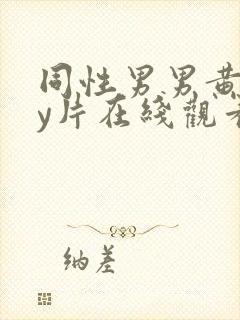 同性男男黄
y片在綫觀看
纳差